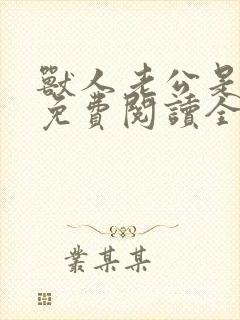 獸人老公是
免費閱讀全
叢某某